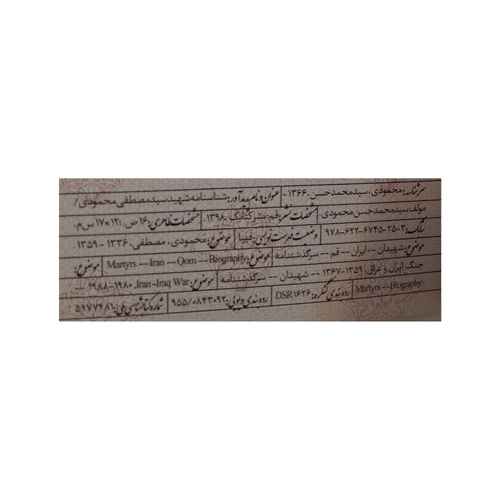 سرشناسه: محمودی، سیدمحمدحسن، ۱۳۶۶- عنوان و نام پدیدآور: شناسنامه شهید سیدمصطفی محمودی/
مولف سیدمحمدحسن محمودی. مشخصات نشر: قم: نشر کتابک، ۱۳۹۸. مشخصات ظاهری: ۱۶ص.؛ ۱۲×۱۷ س‌م.
شابک: ۹۷۸-۶۲۲-۶۷۴۵-۲۵-۳ وضعیت فهرست نویسی: فیپا موضوع: محمودی، مصطفی، ۱۳۳۶ - ۱۳۵۹.
موضوع: شهیدان -- ایران -- قم -- سرگذشتنامه موضوع: Martyrs -- Iran -- Qom -- Biography موضوع:
جنگ ایران و عراق، ۱۳۵۹-۱۳۶۷ -- شهیدان -- سرگذشتنامه موضوع: Iran-Iraq War, ۱۹۸۰-۱۹۸۸ --
Martyrs -- Biography رده بندی کنگره: DSR۱۶۲۶ رده بندی دیویی: ۹۵۵/۰۸۴۳۰۹۲ شماره کتابشناسی ملی: ۵۹۷۷۴۸۱